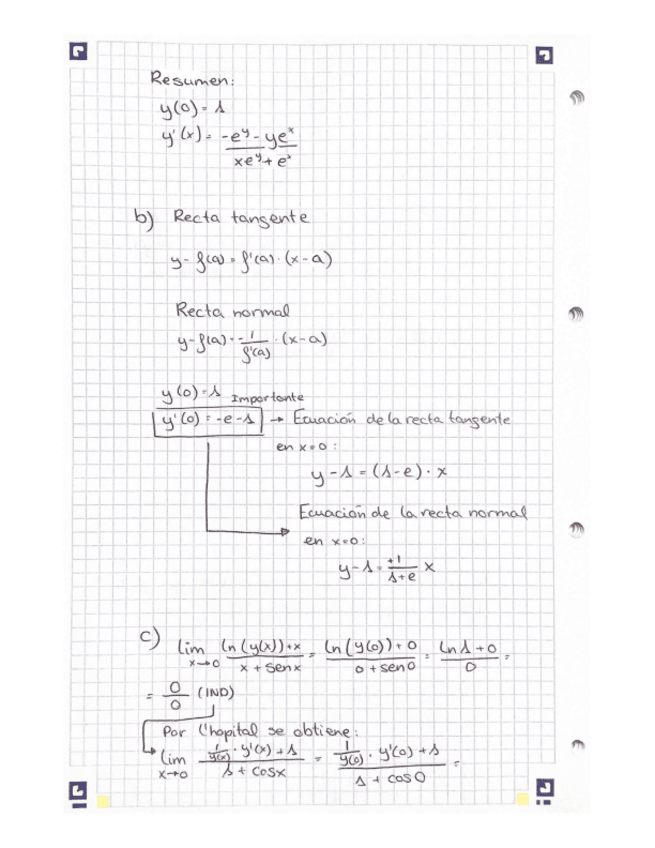 Resumen:
y(0) = 1
y'(x) = \frac{-e^y - ye^x}{xe^y + e^x}
b) Recta tangente
y - f(a) = f'(a) · (x - a)
Recta normal
y - f(a) = -\frac{1}{f'(a)} · (x - a)
y(0) = 1 Importante
y'(0) = -e - 1 → Ecuación de la recta tangente
en x=0:
y - 1 = (1 - e) · x
Ecuación de la recta normal
en x=0:
y - 1 = \frac{+1}{1+e} x
c) lim x→0 \frac{ln(y(x)) + x}{x + senx} = \frac{ln(y(0)) + 0}{0 + sen0} = \frac{ln1 + 0}{0} =
= \frac{0}{0} (IND)
Por l'hopital se obtiene:
lim x→0 \frac{\frac{1}{y(x)} · y'(x) + 1}{1 + cosx} = \frac{\frac{1}{y(0)} · y'(0) + 1}{1 + cos0} =